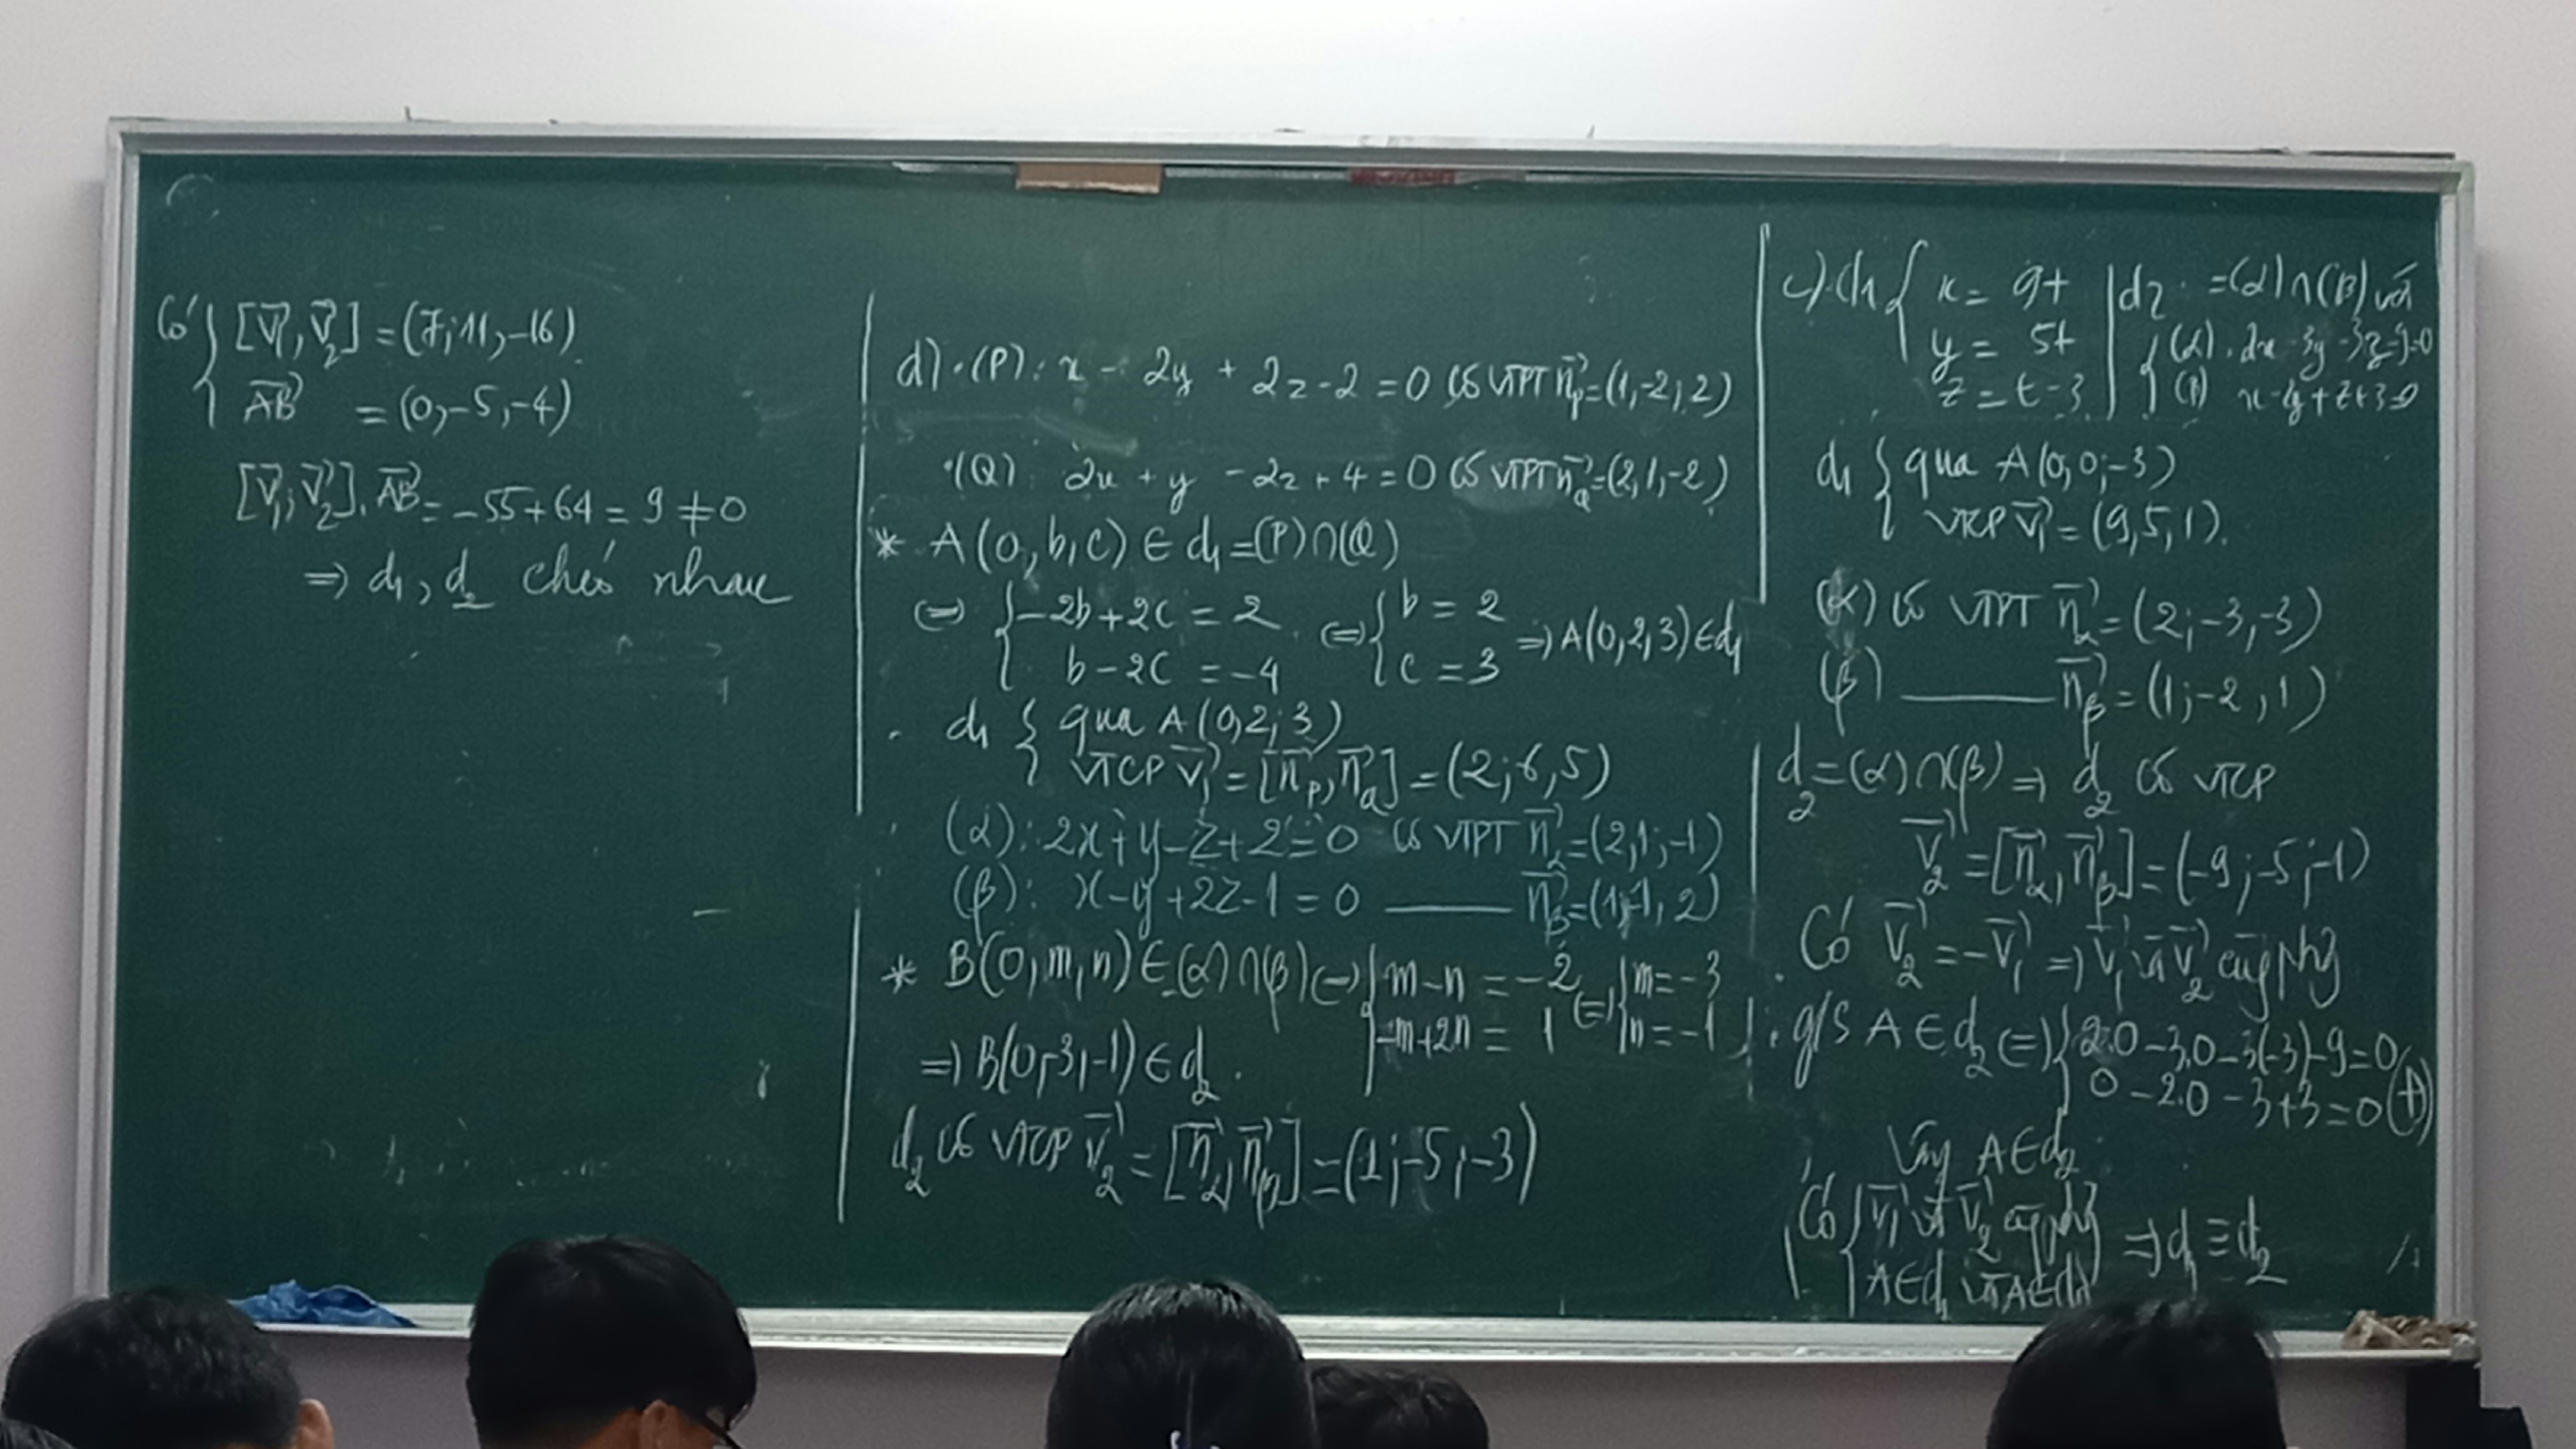 Có { [v₁, v₂] = (7; 11, -16)
AB = (0, -5, -4)
[v₁; v₂]. AB = -55 + 64 = 9 ≠ 0
⇒ d₁, d₂ chéo nhau
d) · (P): x - 2y + 2z - 2 = 0 có VTPT n_P = (1, -2, 2)
· (Q): 2x + y - 2z + 4 = 0 có VTPT n_Q = (2, 1, -2)
* A(0, b, c) ∈ d₁ = (P) ∩ (Q)
⇔ { -2b + 2c = 2 ⇔ { b = 2 ⇒ A(0, 2, 3) ∈ d₁
b - 2c = -4 c = 3
· d₁ { qua A(0, 2; 3)
VTCP v₁ = [n_P, n_Q] = (2; 6, 5)
· (α): 2x + y - z + 2 = 0 có VTPT n_α = (2, 1; -1)
(β): x - y + 2z - 1 = 0 —— n_β = (1; -1, 2)
* B(0, m, n) ∈ (α) ∩ (β) ⇔ { m - n = -2 ⇔ { m = -3
-m + 2n = 1 n = -1
⇒ B(0, -3, -1) ∈ d₂.
d₂ có VTCP v₂ = [n_α, n_β] = (1; -5; -3)
c) · d₁ { x = 9t | d₂ = (α) ∩ (β) với
y = 5t { (α). 2x - 3y - 3z - 9 = 0
z = t - 3 (β) x - 2y + z + 3 = 0
d₁ { qua A(0, 0; -3)
VTCP v₁ = (9, 5, 1).
(α) có VTPT n_α = (2; -3, -3)
(β) —— n_β = (1; -2, 1)
d₂ = (α) ∩ (β) ⇒ d₂ có VTCP
v₂ = [n_α, n_β] = (-9; -5; -1)
· Có v₂ = -v₁ ⇒ v₁ và v₂ cùng phg
· g/s A ∈ d₂ ⇔ { 2.0 - 3.0 - 3(-3) - 9 = 0
0 - 2.0 - 3 + 3 = 0 (Đ)
Vậy A ∈ d₂
Có { v₁ và v₂ cùng phg ⇒ d₁ ≡ d₂
A ∈ d₁ và A ∈ d₂